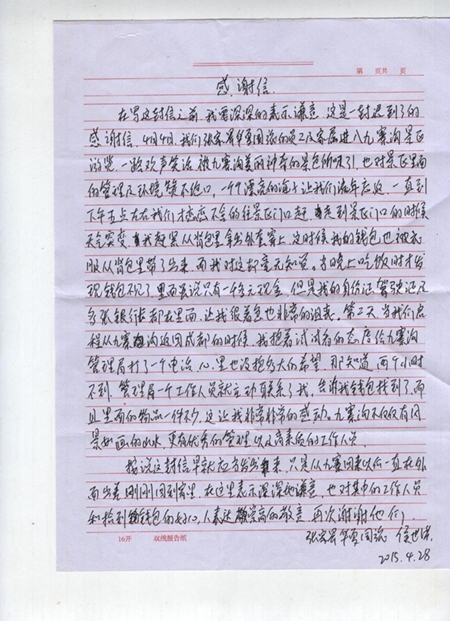 第 页共 页
感谢信
在写这封信之前,我要深深的表示谦意,这是一封迟到了的
感谢信,4月4日,我们张家界华夏国旅的员工及家属进入九寨沟景区
游览,一路欢声笑语,被九寨沟美丽神奇的景色所吸引,也对景区里面
的管理及环境赞不绝口,一个个漂亮的海子让我们流连忘返,一直到
下午五点左右我们才恋恋不舍的往景区门口赶,走到景区门口的时候
天气突变,我赶紧从背包里拿出外套穿上,这时候我的钱包也被衣
服从背包里带了出来,而我对这却毫无知觉。等晚上吃饭时才发
现钱包不见了,里面虽说只有一千多元现金,但是我的身份证驾驶证及
多张银行卡都在里面,让我很着急也非常的沮丧。第二天当我们启
程从九寨沟返回成都的时候,我抱着试试看的态度给九寨沟
管理局打了一个电话,心里也没抱多大的希望,那知道,两个小时
不到,管理局一个工作人员就主动联系了我,告诉我钱包找到了,而
且里面的物品一件不少,这让我非常非常的感动,九寨沟不仅仅有风
景如画的山水,更有优秀的管理以及高素质的工作人员。
按说这封信早就应当写出来,只是从九寨回来以后一直在外
面出差刚刚回到家里,在这里表示深深地谦意,也对其中的工作人员
和捡到钱包的好心人表达崇高的敬意,再次谢谢他们。
张家界华夏国旅
2015.4.28
16开 双线报告纸